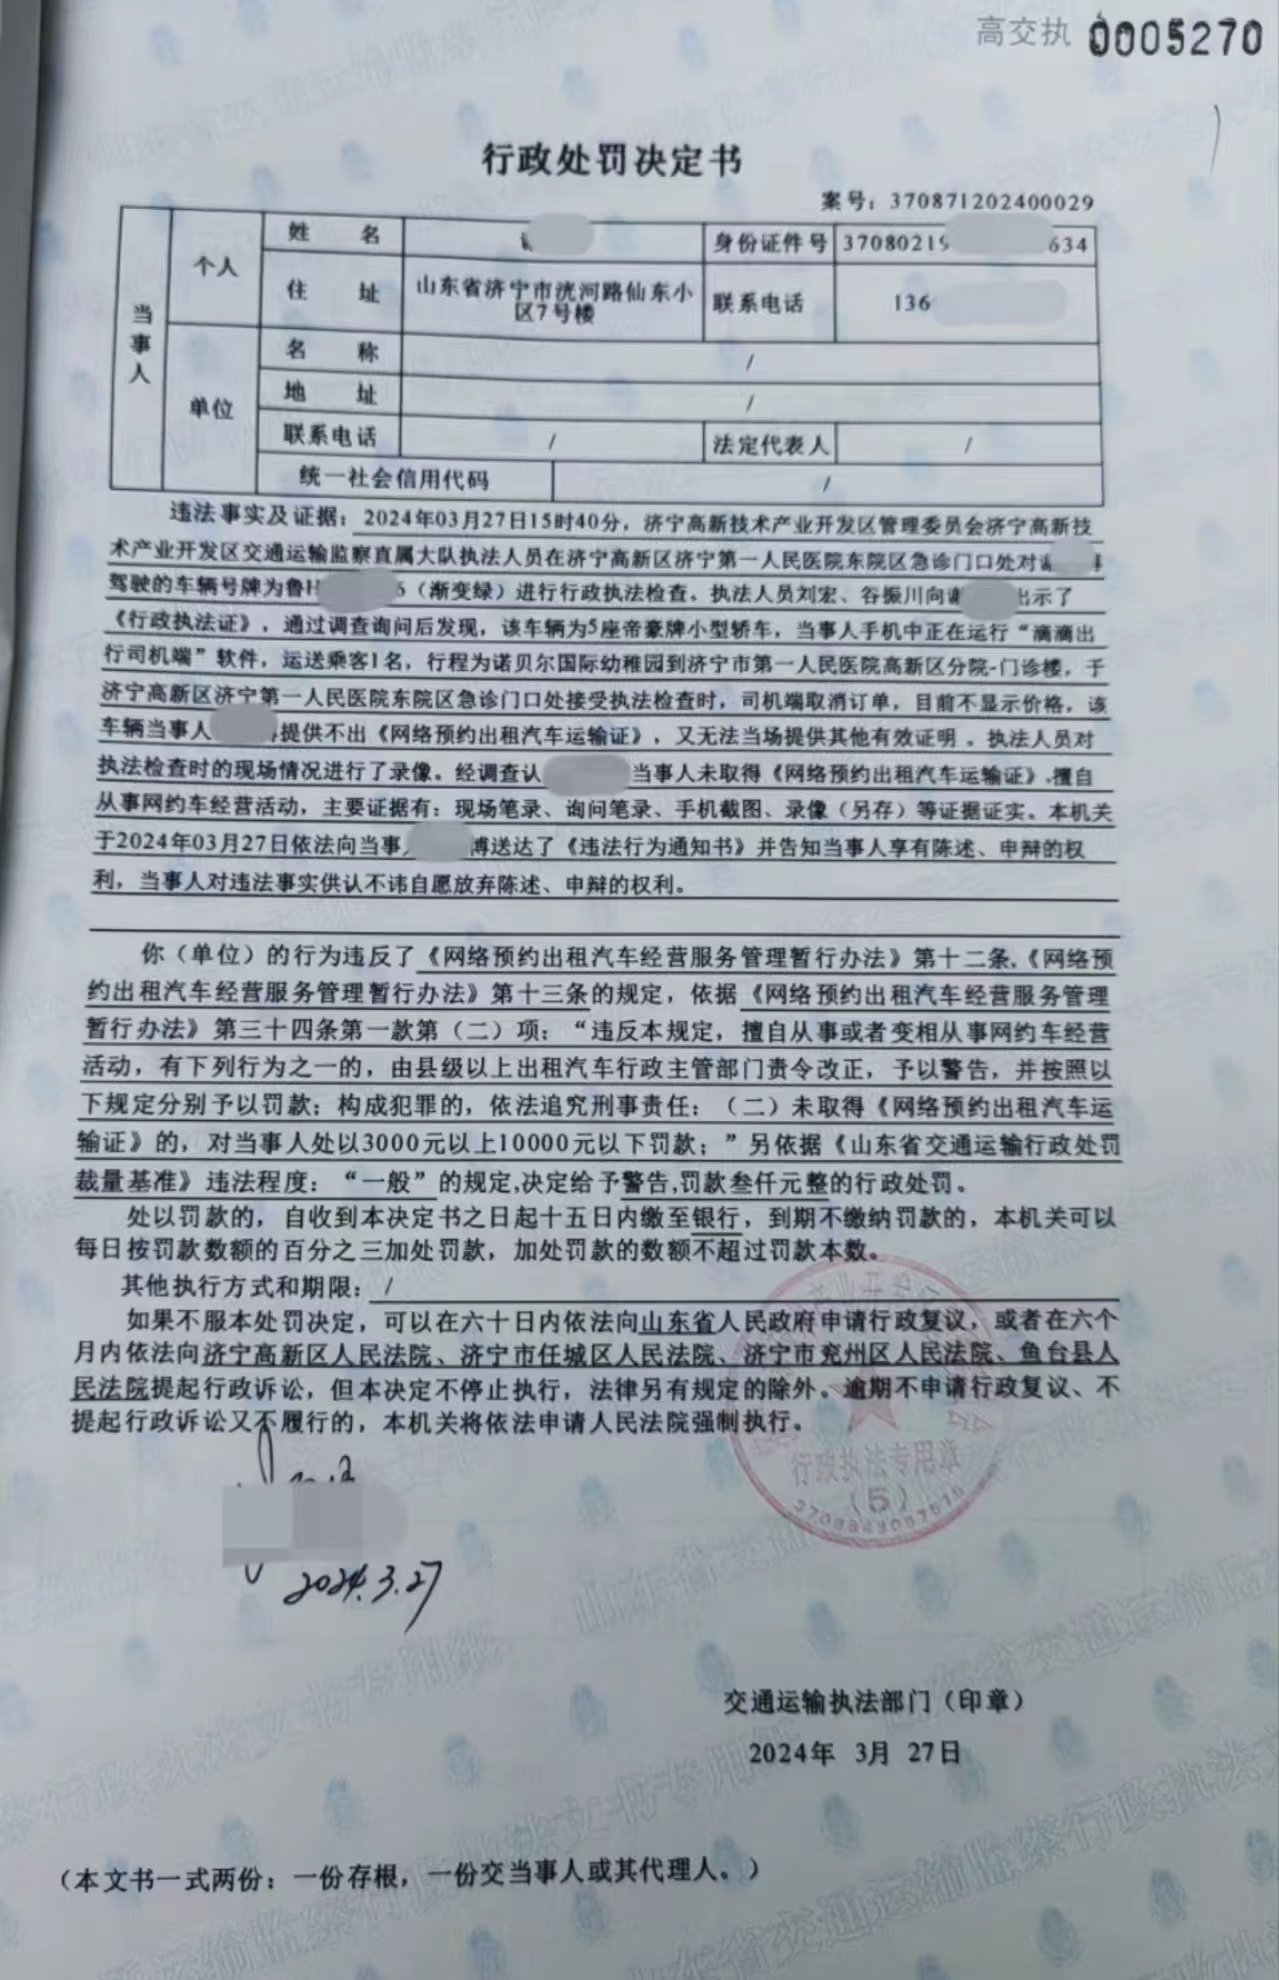 高交执 0005270
行政处罚决定书
案号：370871202400029
当事人
个人
姓 名
身份证件号 37080219 634
住 址 山东省济宁市洸河路仙东小区7号楼
联系电话 136
单位
名 称 /
地 址 /
联系电话 / 法定代表人 /
统一社会信用代码 /
违法事实及证据：2024年03月27日15时40分，济宁高新技术产业开发区管理委员会济宁高新技
术产业开发区交通运输监察直属大队执法人员在济宁高新区济宁第一人民医院东院区急诊门口处对
驾驶的车辆号牌为鲁H 6（渐变绿）进行行政执法检查。执法人员刘宏、谷振川向谢 出示了
《行政执法证》，通过调查询问后发现，该车辆为5座帝豪牌小型轿车，当事人手机中正在运行“滴滴出
行司机端”软件，运送乘客1名，行程为诺贝尔国际幼稚园到济宁市第一人民医院高新区分院-门诊楼，于
济宁高新区济宁第一人民医院东院区急诊门口处接受执法检查时，司机端取消订单，目前不显示价格，该
车辆当事人 提供不出《网络预约出租汽车运输证》，又无法当场提供其他有效证明。执法人员对
执法检查时的现场情况进行了录像。经调查认 当事人未取得《网络预约出租汽车运输证》.擅自
从事网约车经营活动，主要证据有：现场笔录、询问笔录、手机截图、录像（另存）等证据证实。本机关
于2024年03月27日依法向当事 博送达了《违法行为通知书》并告知当事人享有陈述、申辩的权
利，当事人对违法事实供认不讳自愿放弃陈述、申辩的权利。
你（单位）的行为违反了《网络预约出租汽车经营服务管理暂行办法》第十二条,《网络预
约出租汽车经营服务管理暂行办法》第十三条的规定，依据《网络预约出租汽车经营服务管理
暂行办法》第三十四条第一款第（二）项：“违反本规定，擅自从事或者变相从事网约车经营
活动，有下列行为之一的，由县级以上出租汽车行政主管部门责令改正，予以警告，并按照以
下规定分别予以罚款；构成犯罪的，依法追究刑事责任：（二）未取得《网络预约出租汽车运
输证》的，对当事人处以3000元以上10000元以下罚款；”另依据《山东省交通运输行政处罚
裁量基准》违法程度：“一般”的规定,决定给予警告,罚款叁仟元整的行政处罚。
处以罚款的，自收到本决定书之日起十五日内缴至银行，到期不缴纳罚款的，本机关可以
每日按罚款数额的百分之三加处罚款，加处罚款的数额不超过罚款本数。
其他执行方式和期限：/
如果不服本处罚决定，可以在六十日内依法向山东省人民政府申请行政复议，或者在六个
月内依法向济宁高新区人民法院、济宁市任城区人民法院、济宁市兖州区人民法院、鱼台县人
民法院提起行政诉讼，但本决定不停止执行，法律另有规定的除外。逾期不申请行政复议、不
提起行政诉讼又不履行的，本机关将依法申请人民法院强制执行。
行政执法专用章
（5）
2024.3.27
交通运输执法部门（印章）
2024年 3月 27日
（本文书一式两份：一份存根，一份交当事人或其代理人。）